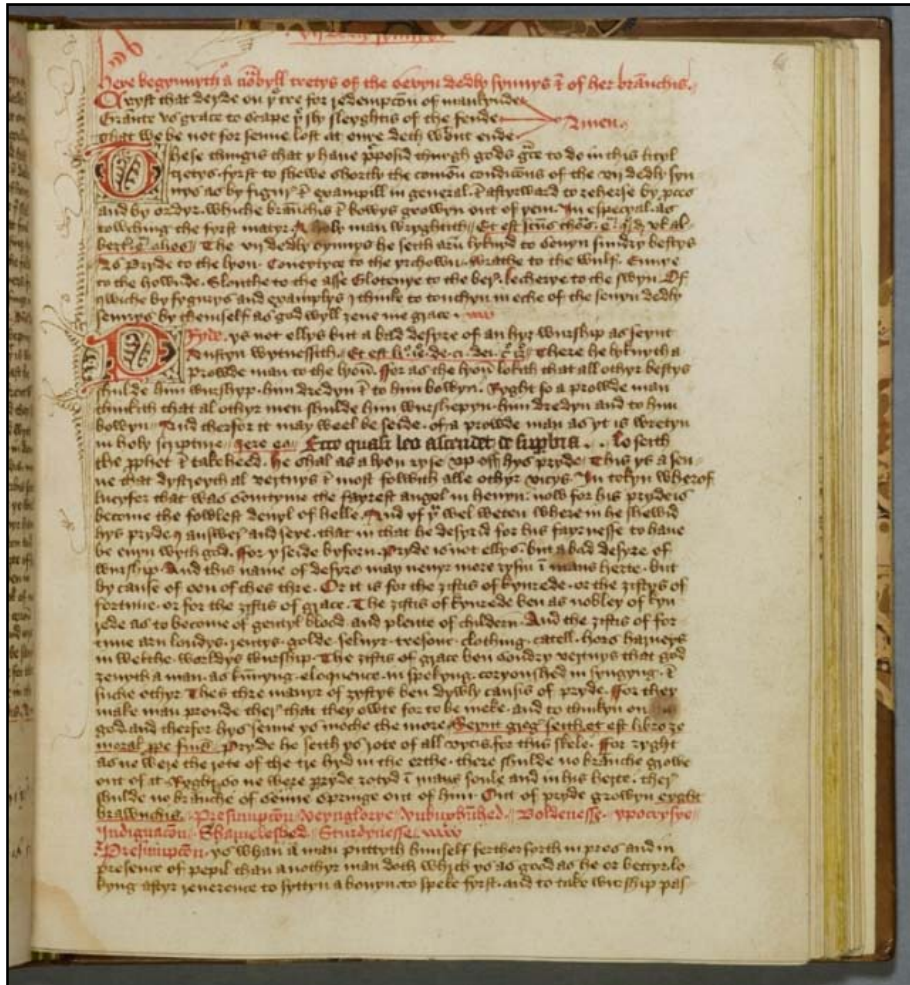 Here begynnyth a nobyll tretys of the Sevyn dedly synnys & of her branchis.
Cryst that deyde on ye tre for redempcon of mankynde
Grante vs grace to scape ye sly sleyghtis of the fende
that we be not for senne lost at oure deth wout ende
Amen.
These thingis that y have pposid thurgh gods gce to do in this lityl
tretys. fyrst to shewe shortly the comon condicons of the vij dedly syn
nys as by figur & exampill in general. & aftyrward to reherse by pces
and by ordyr. whiche branchis & bowys growyn out of yem. In especyal. as
towching the fyrst matyr. A holy man wryghtith
The vij dedly synnys he seith arn lyknyd to sevyn sundry bestys
As Pryde to the lyon. Coveytyce to the yrchown. wrathe to the wulf. Envye
to the hownde. Slouthe to the asse Glotenye to the ber. lecherye to the swyn. Of
qwiche by fygurys and examplys I thinke to touchyn in eche of the sevyn dedly
sennys by themself as god wyll zeve me grace.
Pryde. ys not ellys but a bad desyre of an hyz wurship as seynt
Austyn wytnessith. There he lyknyth a
prowde man to the lyon. ffor as the lyon lokith that all othyr bestys
shulde him wurshypp. him dredyn & to him bowyn. Ryght so a prowde man
thinkith that al othyr men shulde him wurshepyn. him dredyn and to him
bowyn. And therfor it may weel be seide. of a prowde man as yt is wretyn
in holy scripture. Ecce quasi leo ascendet de supbia. lo seith
the pphet & take heed. he shal as a lyon ryse vp off hys pryde. This ys a sen
ne that dystroyth al vertuys & most folwith alle othyr vicys. In tokyn wherof
lucyfer that was somtyme the fayrest angel in hevyn. now for his pryde is
become the fowlest devyl of helle. And yf ye wel weten where in he shewid
hys pryde y answer and seye. that in that he desyrid for his fayrnesse to have
be evyn wyth god. ffor y seide byforn. Pryde is not ellys. but a bad desyre of
wurship. And this name of desyre may nevyr more rysin i mans herte. but
by cause of oon of thes thre. Or it is for the ziftis of kynrede. or the ziftys of
fortune. or for the ziftis of grace. The ziftis of kynrede ben as nobley of kyn
rede as to become of gentyl blood. and plente of childern. And the ziftis of for
tune arn londys. rentys. golde. selvyr. tresour. clothing. catell. hors harneys
in welthe. worldys wurship. The ziftis of grace ben sondry vertuys that god
zevyth a man. as kunyng. eloquence. in spekyng. coryoushed in syngyng. &
suche othyr. Thes thre manyr of zyftys ben dyvly causis of pryde. ffor they
make man proude ther that they owte for to be meke. and to thinkyn on
god. and therfor hys senne ys moche the more. Seynt greg seith. et est libro
moral ppe fine. Pryde he seith ys rote of all vycis. for this skele. ffor ryght
as ne were the rote of the tre hyd in the erthe. there shulde no branche growe
out of it. Ryght so ne were pryde rotyd i mans soule and in his herte. ther
shulde no branche of senne springe out of him. Out of pryde growyn eyght
brawnchis. Presumpcon. Veynglorye. Unbuxumhed. Boldenesse. ypocrysye
Indignacon. Shameleshed. Sturdynesse.
Presumpcon. ys whan a man puttyth himself ferther forth in pres and in
presence of pepil than anothyr man doth which ys as good as he or bettyr. lo
kyng aftyr reverence to syttyn abovyn. to speke fyrst. and to take wurship pas